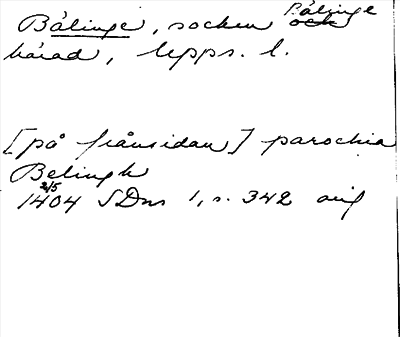 Bälinge, socken Bälinge
härad, Upps. l.
[på frånsidan] parochia
Belingh
1404 2/5 SDns 1, s. 342 orig